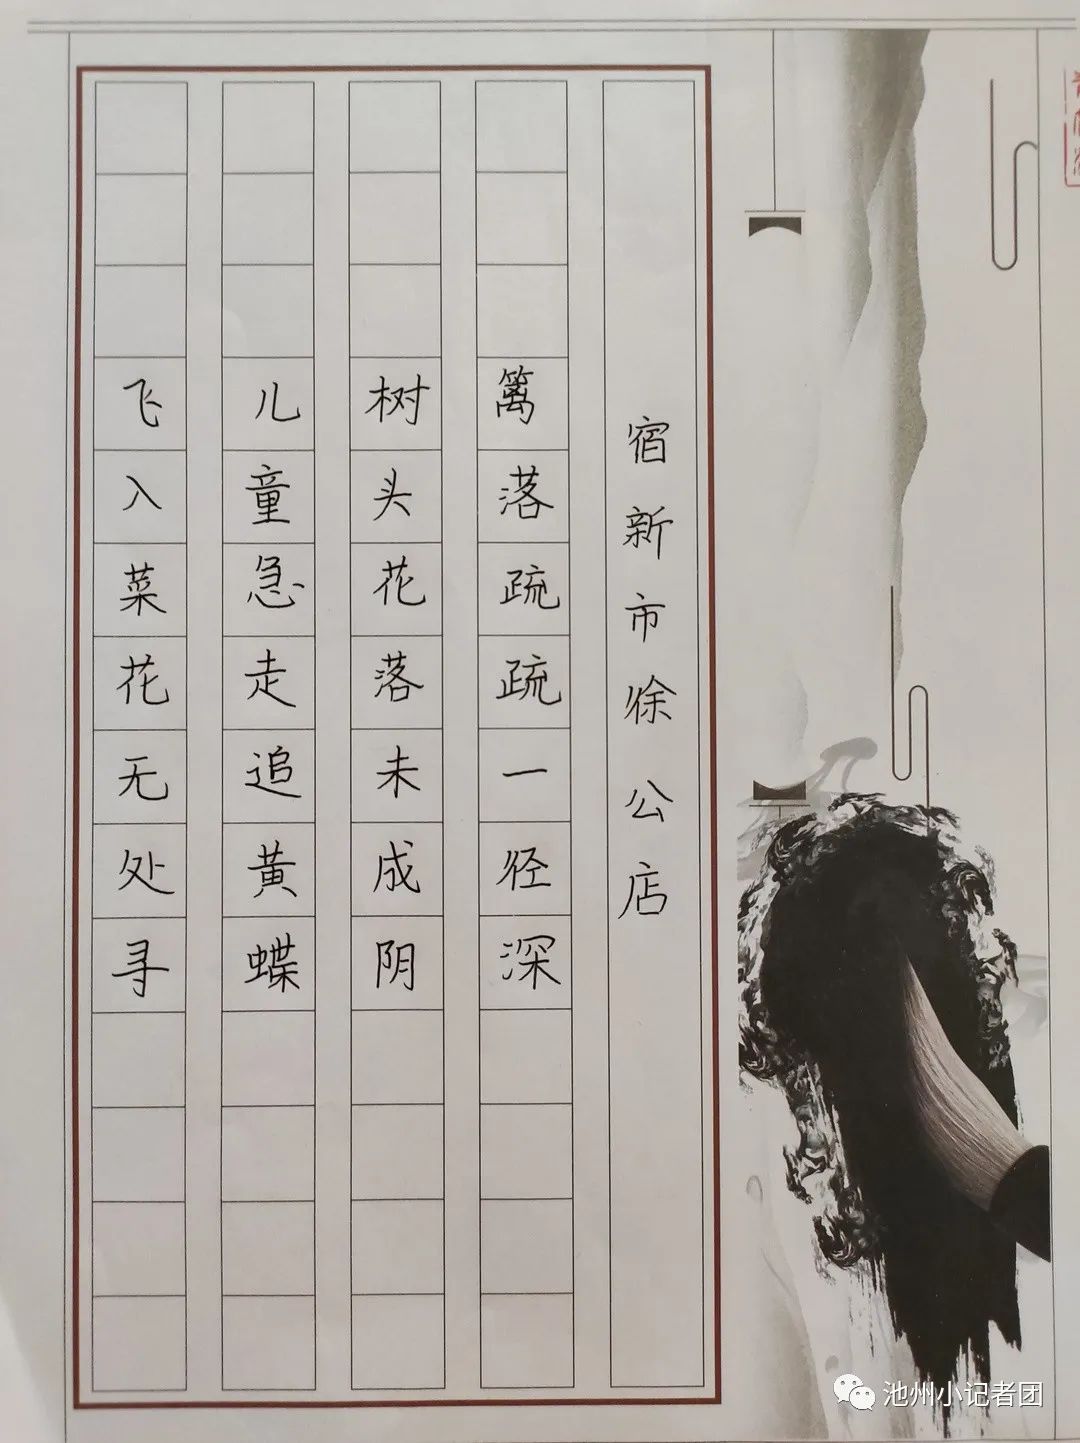 宿新市徐公店
篱落疏疏一径深
树头花落未成阴
儿童急走追黄蝶
飞入菜花无处寻
池州小记者团